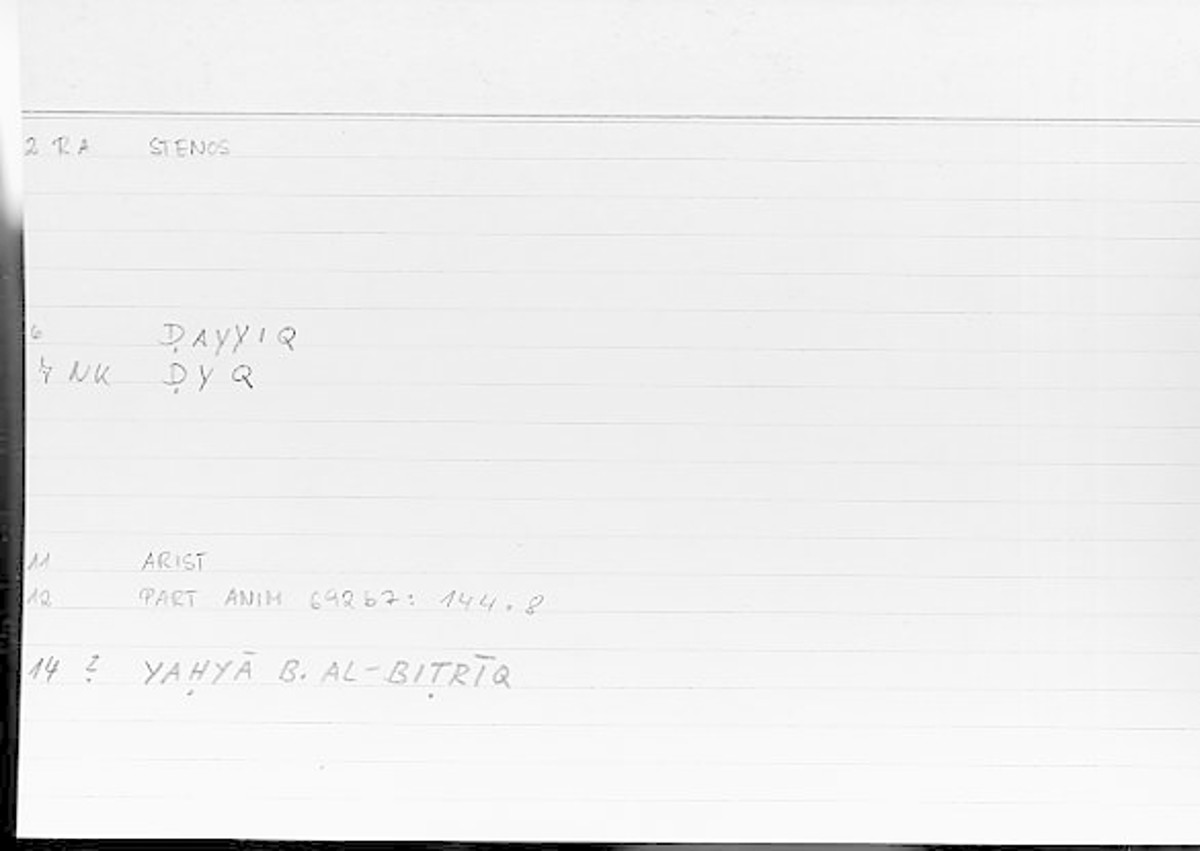 2 RA STENOS
6 ḌAYYIQ
7 NK ḌYQ
11 ARIST
12 PART ANIM 692b7: 144.8
14 ? YAḤYĀ B. AL-BIṬRĪQ